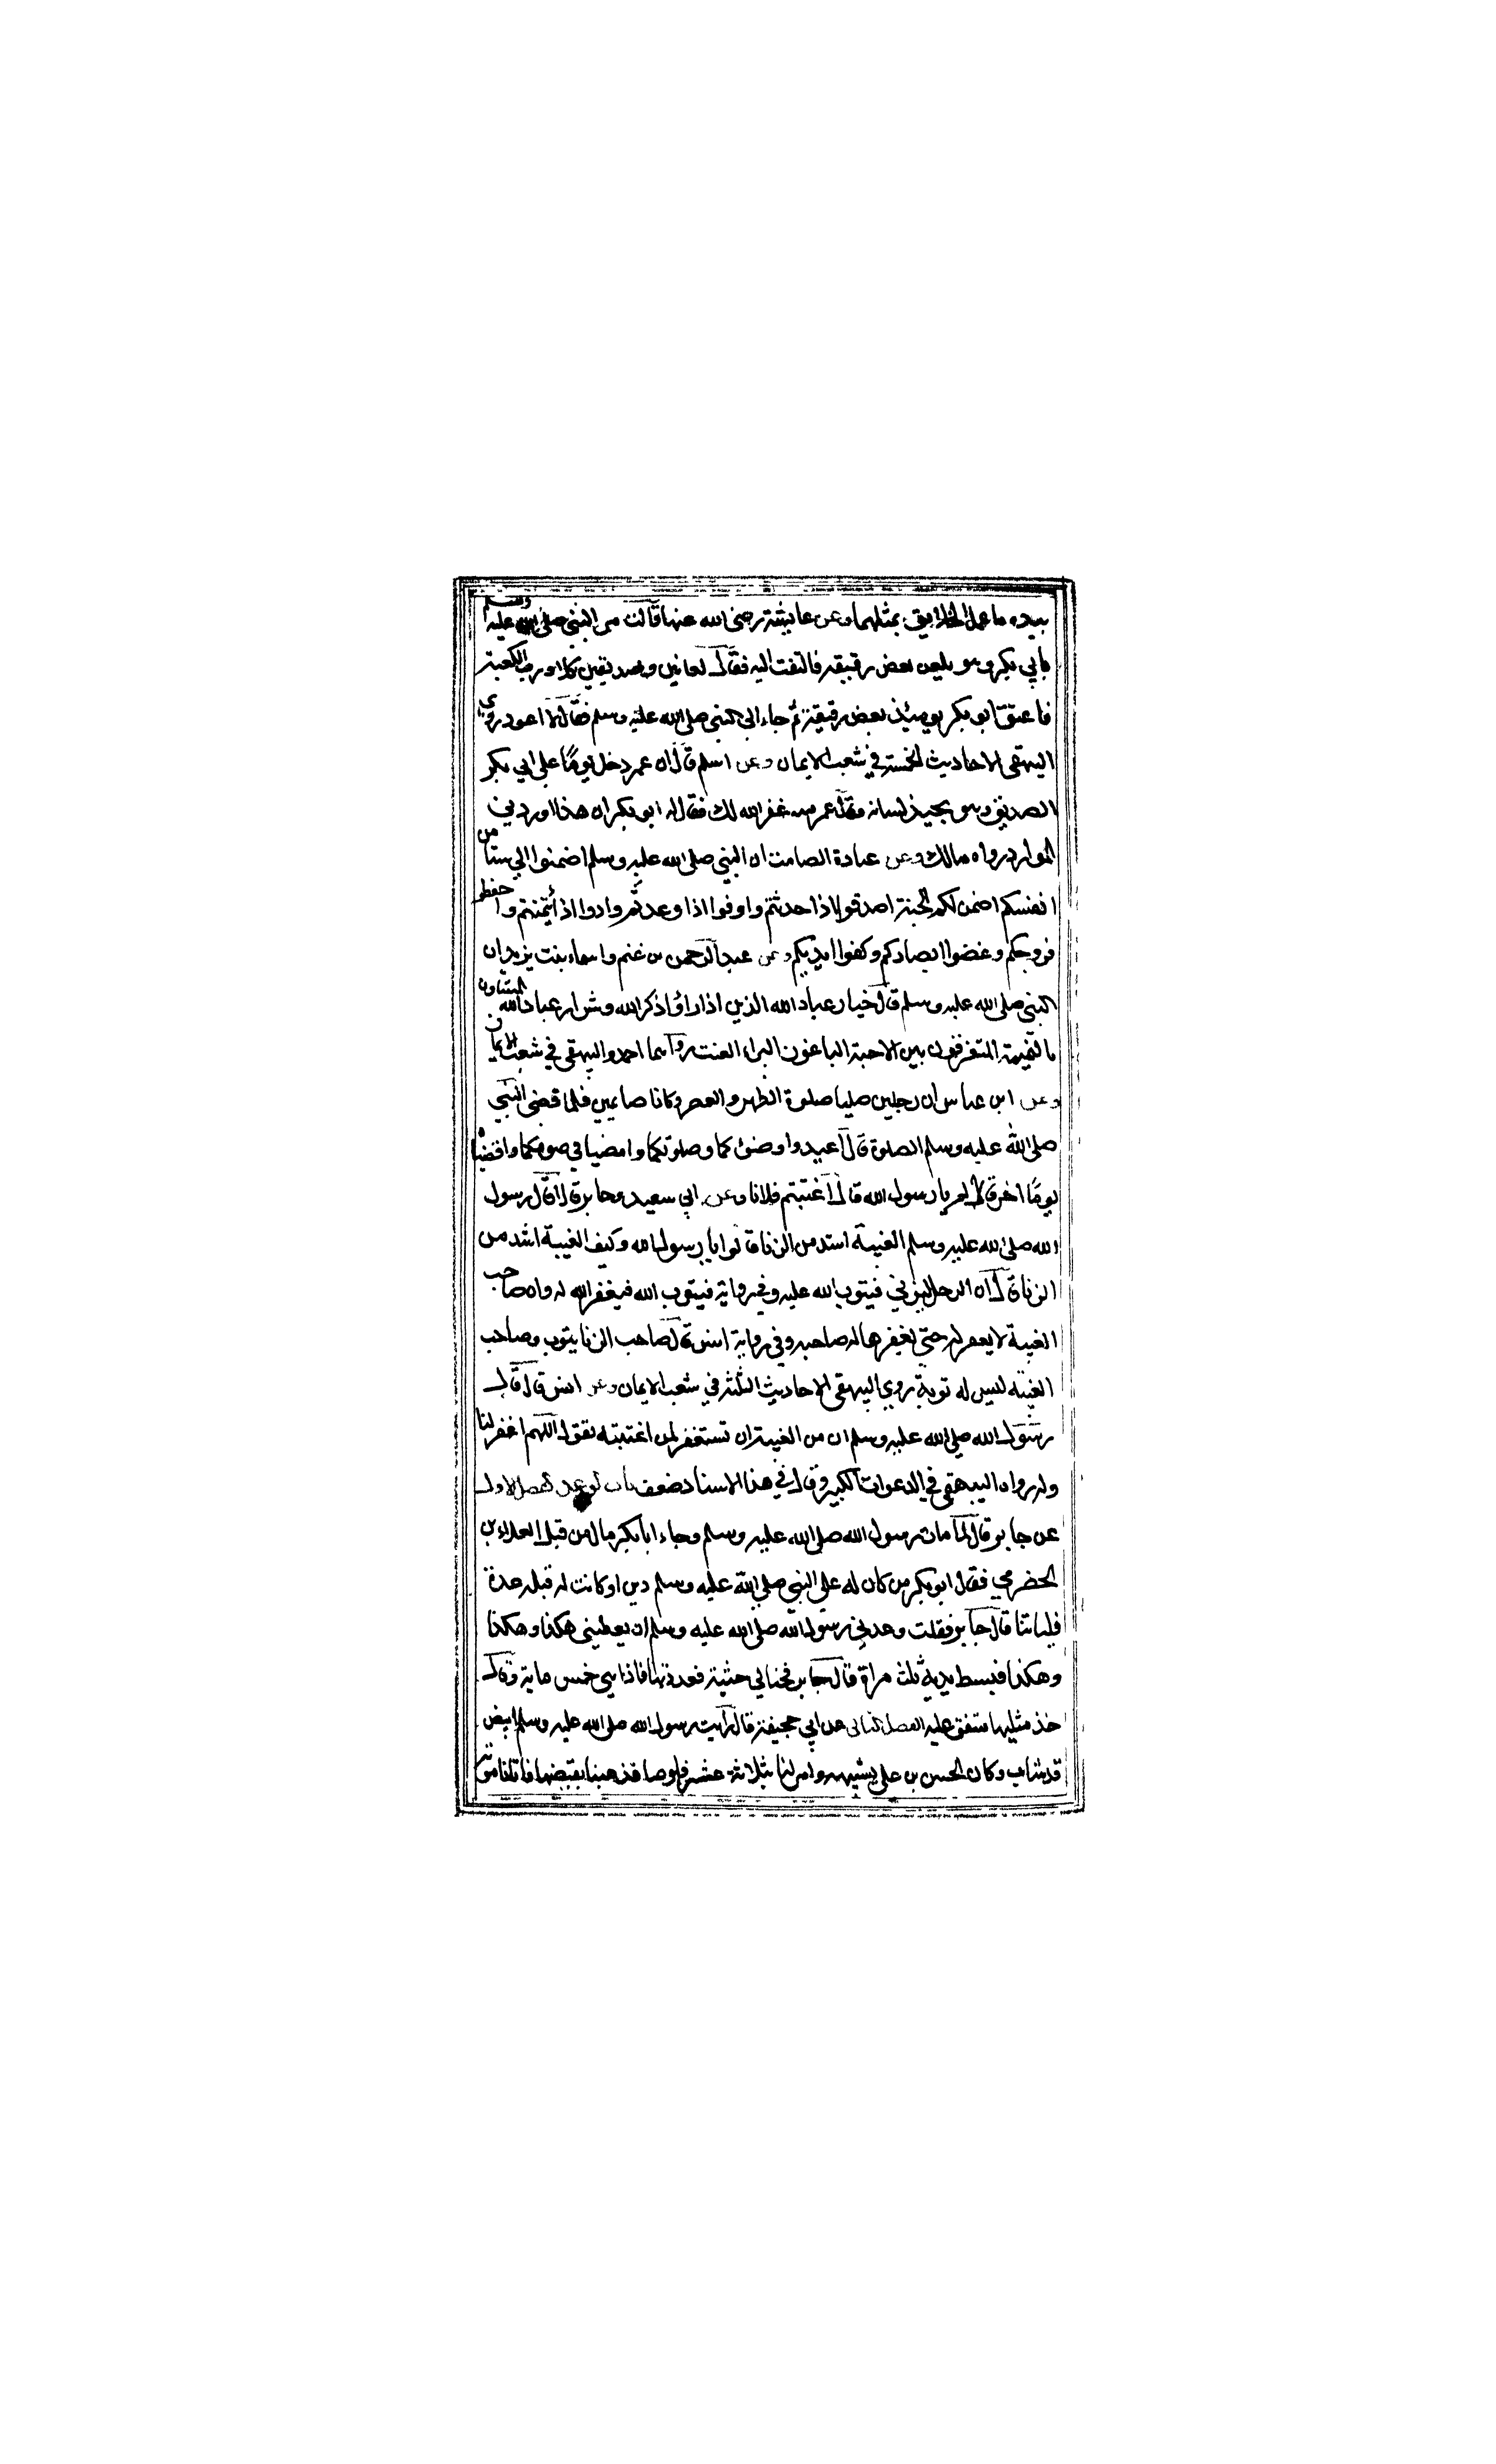 بيده ما عمل الخلايق بمثلهما وعن عايشة رضي الله عنها قالت مر النبي صلى الله عليه وسلم
بابي بكر وهو يلعن بعض رقيقه فالتفت اليه فقال لعانين وصديقين كلا ورب الكعبة
فاعتق ابو بكر يومئذ بعض رقيقه ثم جاء الى النبي صلى الله عليه وسلم فقال لا اعود روي
البيهقي الاحاديث الخمسة في شعب الايمان وعن اسلم قال ان عمر دخل يوما على ابي بكر
الصديق وهو يجبذ لسانه فقال عمر مه غفر الله لك فقال له ابو بكر ان هذا اوردني
الموارد رواه مالك وعن عبادة الصامت ان النبي صلى الله عليه وسلم اضمنوا لي ستا من
انفسكم اضمن لكم الجنة اصدقوا اذا حدثتم واوفوا اذا وعدتم وادوا اذا ائتمنتم واحفظوا
فروجكم وغضوا ابصاركم وكفوا ايديكم وعن عبد الرحمن بن غنم واسماء بنت يزيد ان
النبي صلى الله عليه وسلم قال خيار عباد الله الذين اذا راؤا ذكر الله وشرار عباد الله المشاون
بالنميمة المتفرقون بين الاحبة الباغون البراء العنت رواهما احمد والبيهقي في شعب الايمان
وعن ابن عباس ان رجلين صليا صلوة الظهر والعصر وكانا صايمين فلما قضى النبي
صلى الله عليه وسلم الصلوة قال اعيدوا وضوئكما وصلوتكما وامضيا في صومكما واقضياه
يوما اخر قالا لم يا رسول الله قال اغتبتم فلانا وعن ابي سعيد وجابر قالا قال رسول
الله صلى الله عليه وسلم الغيبة اشد من الزنا قالوا يا رسول الله وكيف الغيبة اشد من
الزنا قال ان الرجل ليزني فيتوب الله عليه وفي رواية فيتوب الله فيغفر الله له وان صاحب
الغيبة لا يغفر له حتى يغفرها له صاحبه وفي رواية انس قال صاحب الزنا يتوب وصاحب
الغيبة ليس له توبة روي البيهقي الاحاديث الثلثة في شعب الايمان وعن انس قال قال
رسول الله صلى الله عليه وسلم ان من الغيبة ان تستغفر لمن اغتبته تقول اللهم اغفر لنا
وله رواه البيهقي في الدعوات الكبير وقال في هذا الاسناد ضعف باب الوعد الفصل الاول
عن جابر قال لما مات رسول الله صلى الله عليه وسلم وجاء ابا بكر مال من قبل العلاء بن
الحضرمي فقال ابو بكر من كان له على النبي صلى الله عليه وسلم دين او كانت له قبله عدة
فلياتنا قال جابر فقلت وعدني رسول الله صلى الله عليه وسلم ان يعطيني هكذا وهكذا
وهكذا فبسط يديه ثلث مراة قال جابر فحثا لي حثية فعددتها فاذا هي خمس ماية وقال
خذ مثليها متفق عليه الفصل الثاني عن ابي جحيفة قال رايت رسول الله صلى الله عليه وسلم ابيض
قد شاب وكان الحسن بن علي يشبهه وامر لنا بثلاثة عشر قلوصا فذهبنا نقبضها فاتانا موته